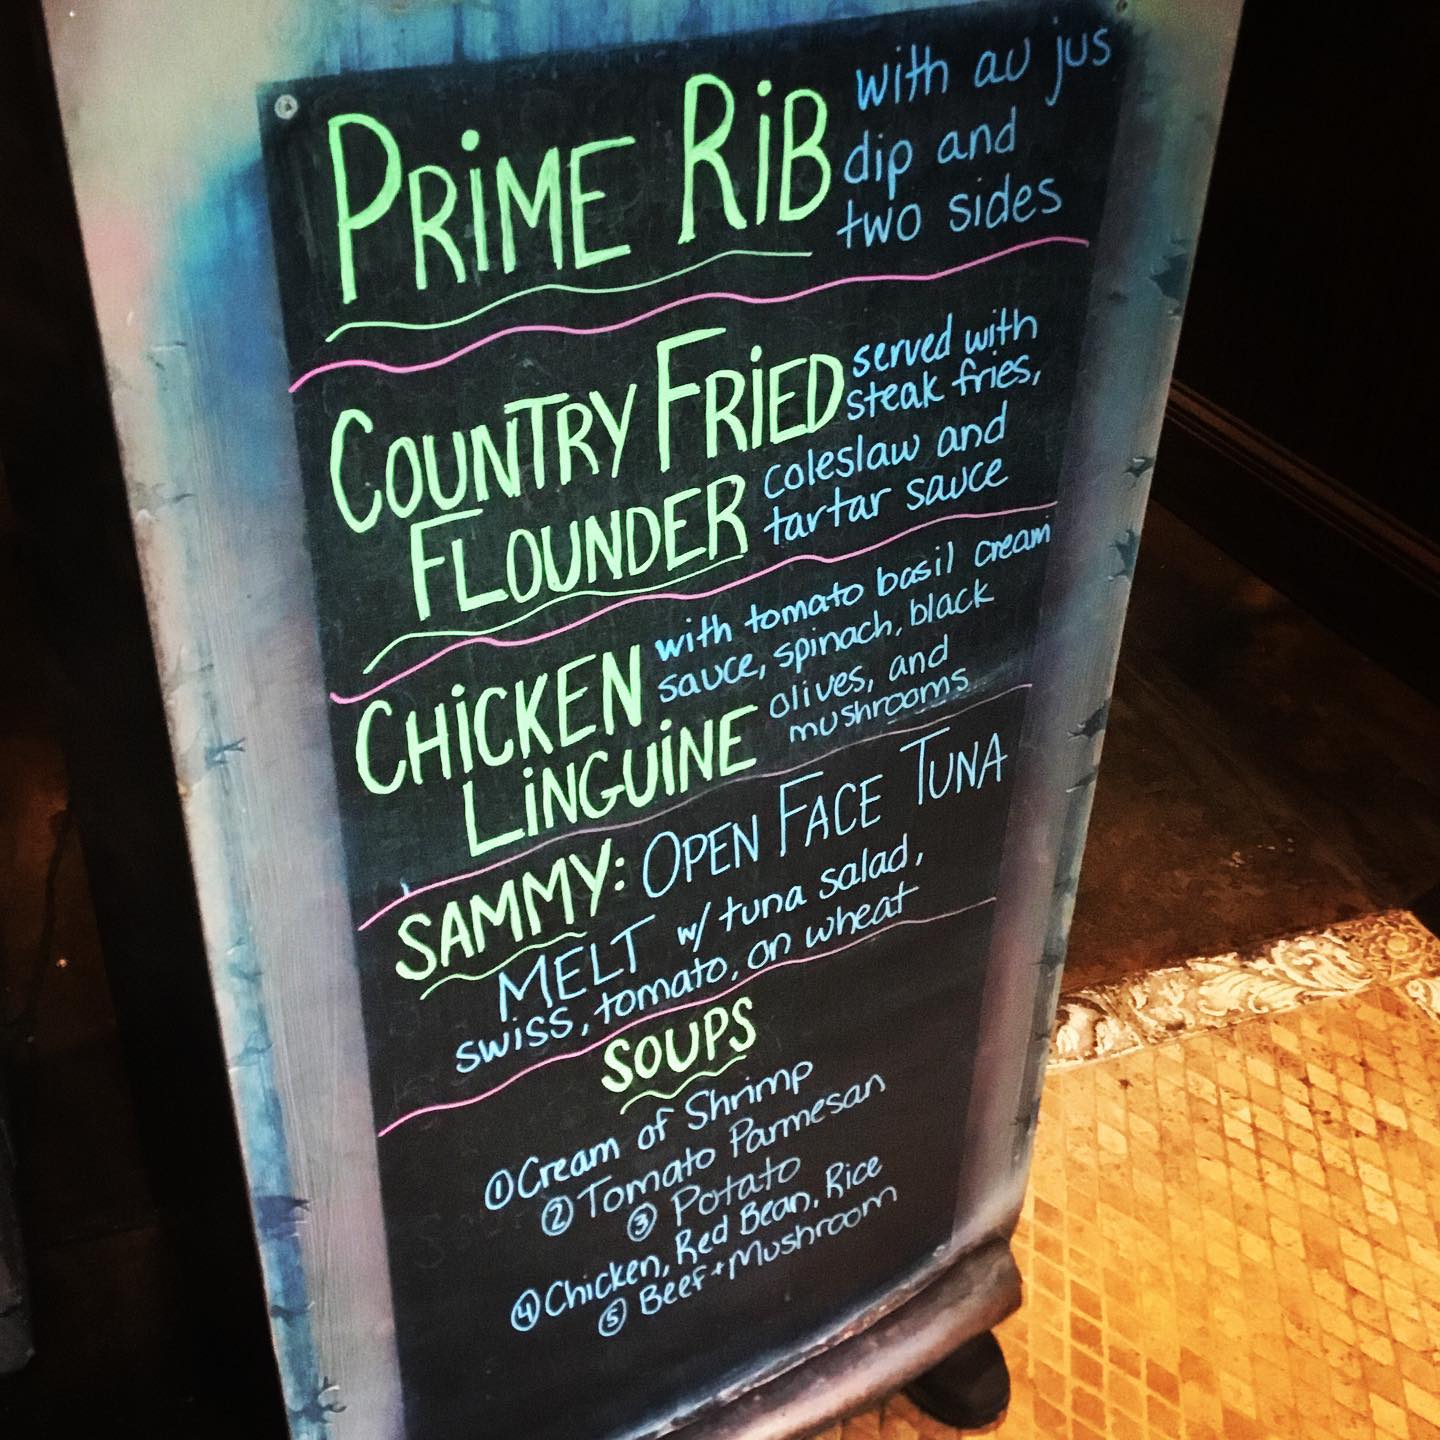 PRiME RiB with au jus
dip and
two sides
COUNTRY FRiED served with
steak fries,
FLOUNDER coleslaw and
tartar sauce
CHiCKEN with tomato basil cream
sauce, spinach, black
LiNGUiNE olives, and
mushrooms
SAMMY: OPEN FACE TUNA
MELT w/ tuna salad,
swiss, tomato, on wheat
SOUPS
① Cream of Shrimp
② Tomato Parmesan
③ Potato
④ Chicken, Red Bean, Rice
⑤ Beef + Mushroom